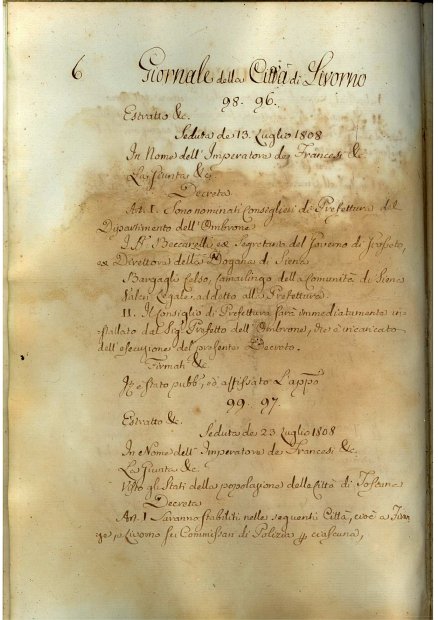 6 Giornale della Città di Livorno
98. 96.
Estratto &c.
Seduta de 13. Luglio 1808
In Nome dell'Imperatore de Francesi &c
La Giunta &c
Decreta
Art. I. Sono nominati Consiglieri di Prefettura del
Dipartimento dell'Ombrone
I Sri. Beccarelli, ex Segretario del Governo di
ex Direttore della Dogana di Siena
Bargagli Celso, Camarlingo della Comunità di Siena
Valeri Legale, addetto alla Prefettura
II. Il Consiglio di Prefettura sarà immediatamente in=
stallato dal Sig. Prefetto dell'Ombrone, che è incaricato
dell'esecuzione del presente Decreto.
Firmati &c.
Ite e stato pubb, ed affissato L'appo
99. 97.
Estratto &c.
Seduta de 23 Luglio 1808
In Nome dell'Imperatore de Francesi &c.
La Giunta &c.
Visto gli Stati della popolazione delle Città di Toscana
Decreta
Art. I Saranno stabiliti nelle seguenti Città, cioè a Firen
ze, e Livorno sei Commissari di Polizia p ciascuna,